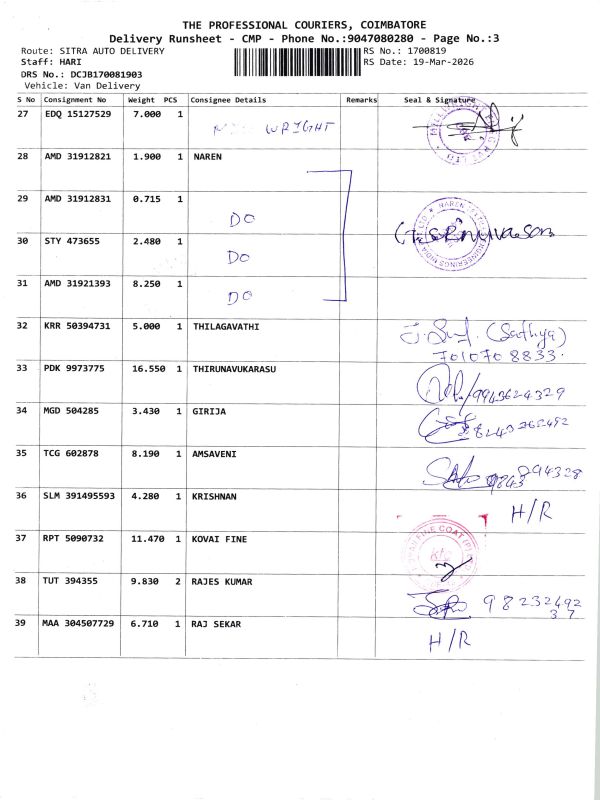 THE PROFESSIONAL COURIERS, COIMBATORE
Delivery Runsheet - CMP - Phone No.:9047080280 - Page No.:3
Route: SITRA AUTO DELIVERY RS No.: 1700819
Staff: HARI RS Date: 19-Mar-2026
DRS No.: DCJB170081903
Vehicle: Van Delivery
S No Consignment No Weight PCS Consignee Details Remarks Seal & Signature
27 EDQ 15127529 7.000 1 WRIGHT
28 AMD 31912821 1.900 1 NAREN
29 AMD 31912831 0.715 1 DO
30 STY 473655 2.480 1 DO
31 AMD 31921393 8.250 1 DO
32 KRR 50394731 5.000 1 THILAGAVATHI (Sathya)
701070 8833.
33 PDK 9973775 16.550 1 THIRUNAVUKARASU
34 MGD 504285 3.430 1 GIRIJA
35 TCG 602878 8.190 1 AMSAVENI
36 SLM 391495593 4.280 1 KRISHNAN H/R
37 RPT 5090732 11.470 1 KOVAI FINE
38 TUT 394355 9.830 2 RAJES KUMAR 98232492
37
39 MAA 304507729 6.710 1 RAJ SEKAR H/R